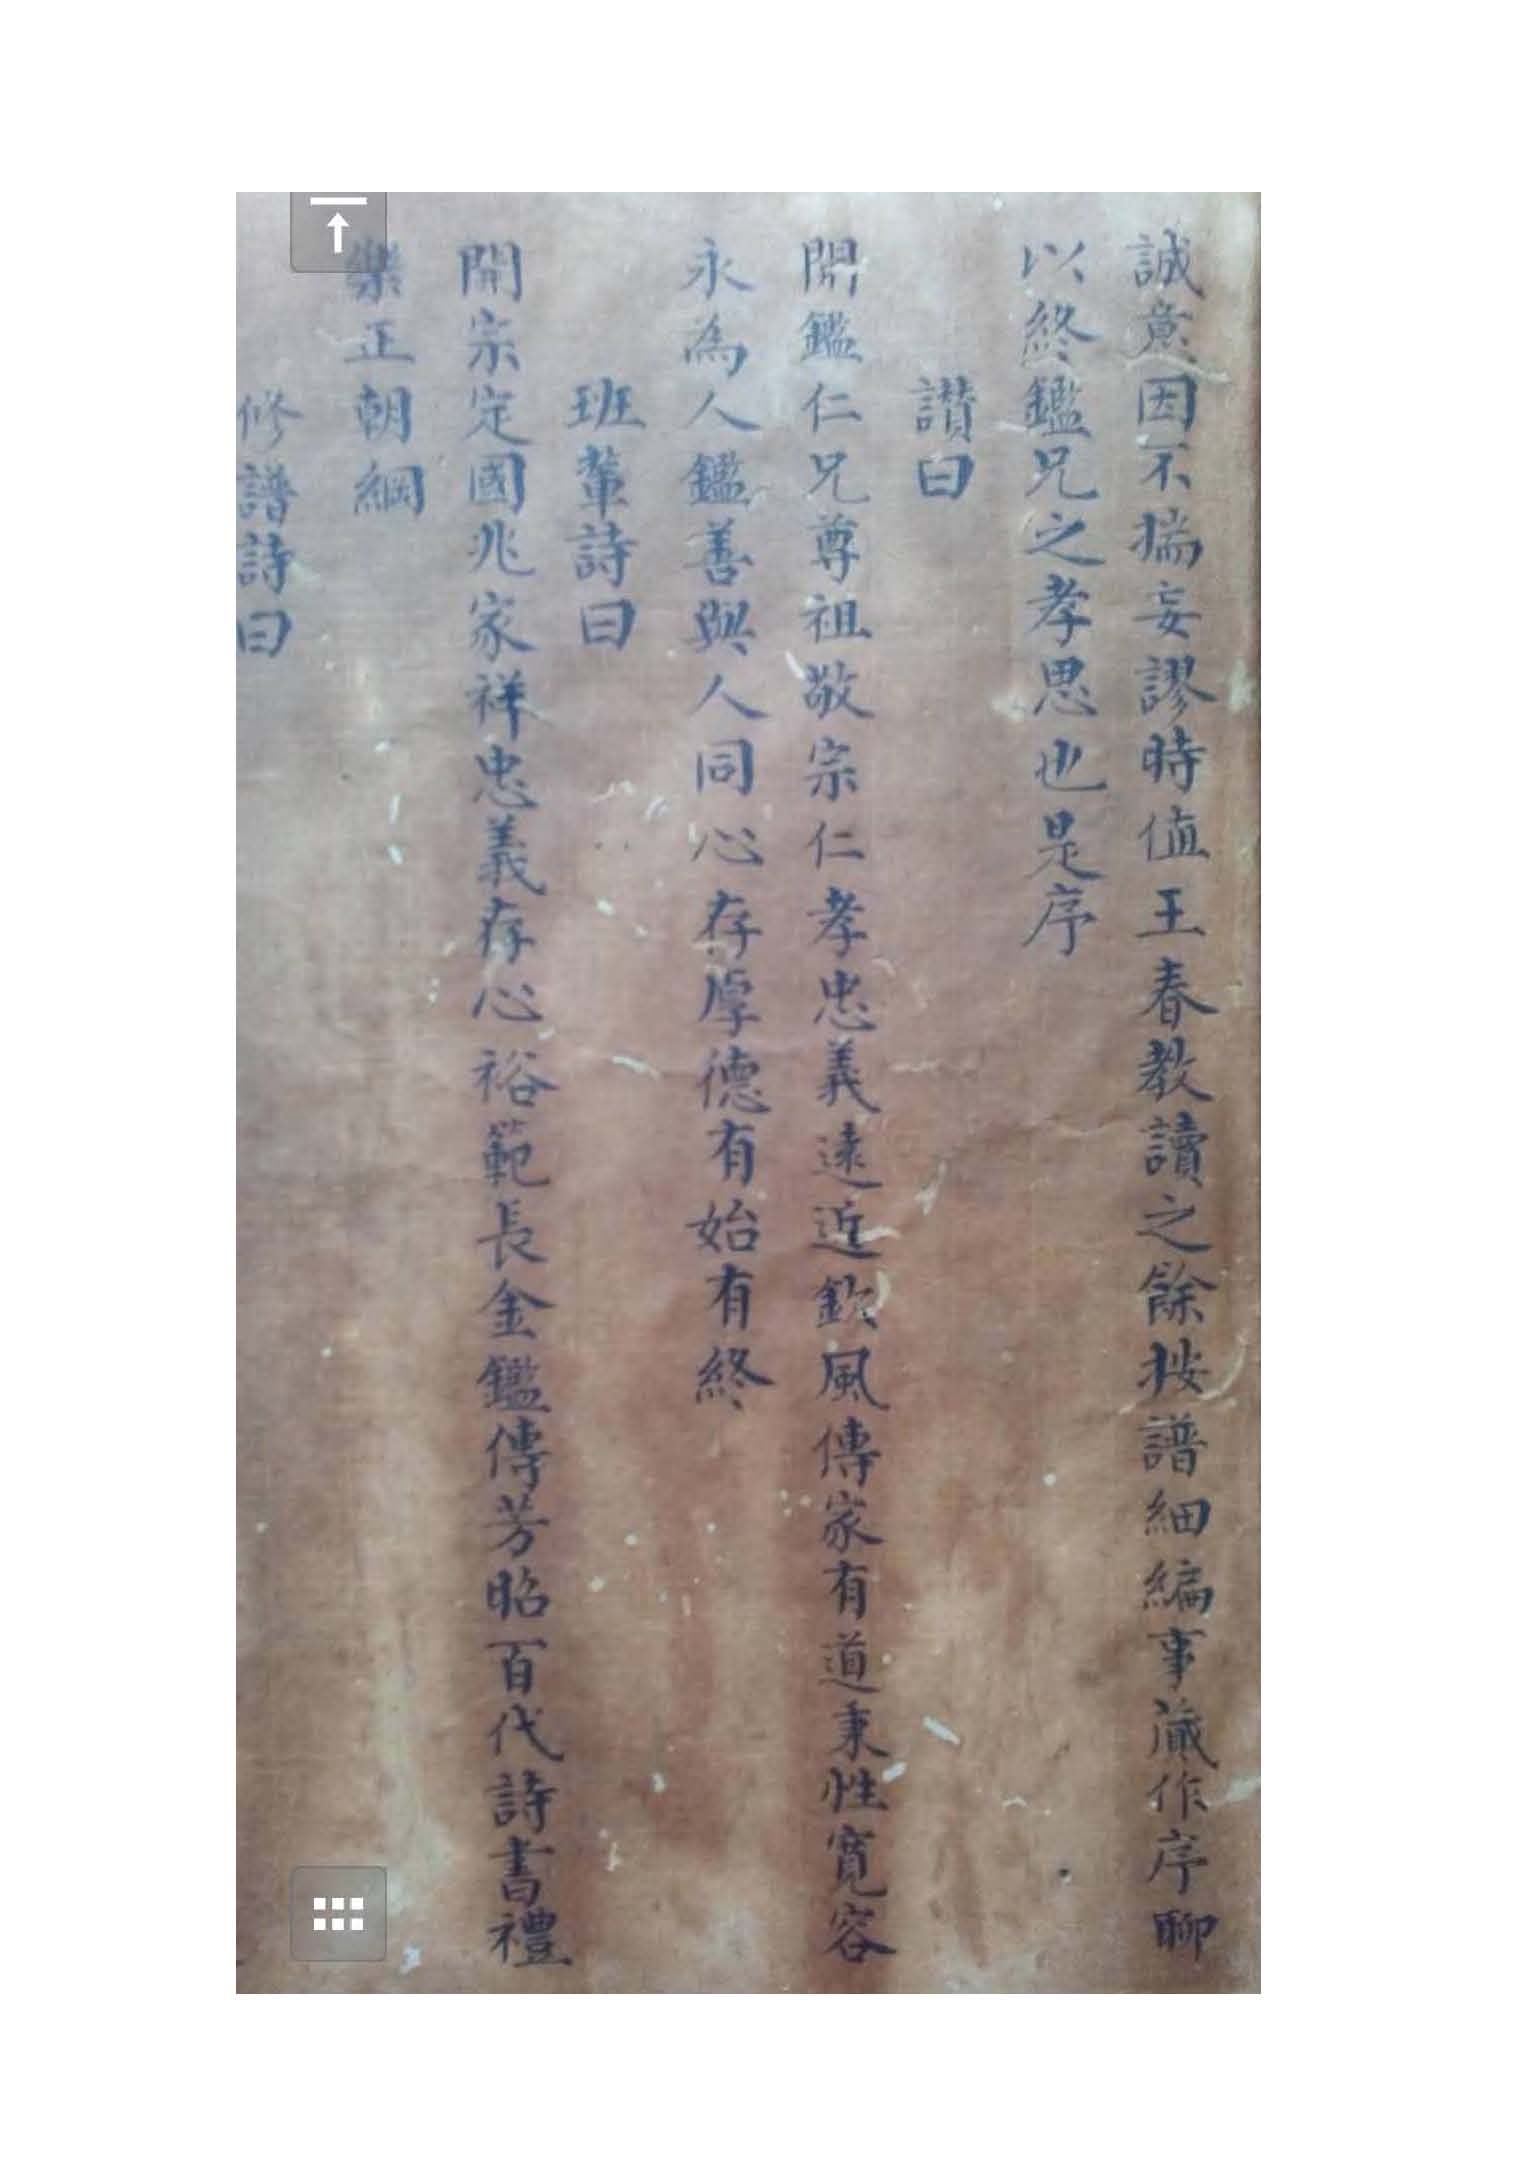 誠意因不揣妄謬時值王春教讀之餘按譜細編事蕆作序聊
以終鑑兄之孝思也是序
讃曰
開鑑仁兄尊祖敬宗仁孝忠義遠近欽風傳家有道秉性寬容
永為人鑑善與人同心存厚德有始有終
班輩詩曰
開宗定國兆家祥忠義存心裕範長金鑑傳芳昭百代詩書禮
樂正朝綱
修譜詩曰